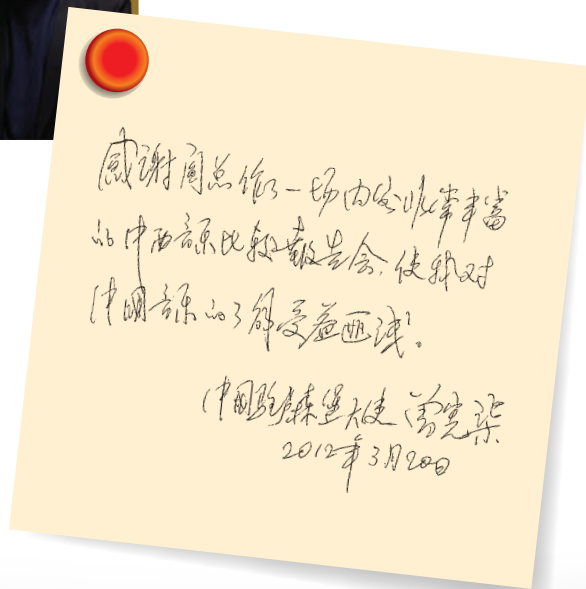 感谢周总作了一场内容非常丰富
的中西音乐比较报告会,使我对
中国音乐的了解受益匪浅。
中国驻卢森堡大使 曾宪柒
2012年3月20日